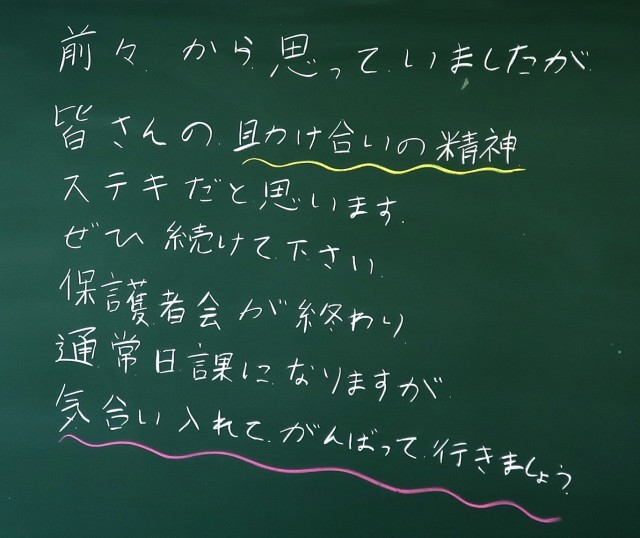 前々から思っていましたが
皆さんの助け合いの精神
ステキだと思います
ぜひ続けて下さい
保護者会が終わり
通常日課になりますが
気合い入れてがんばって行きましょう